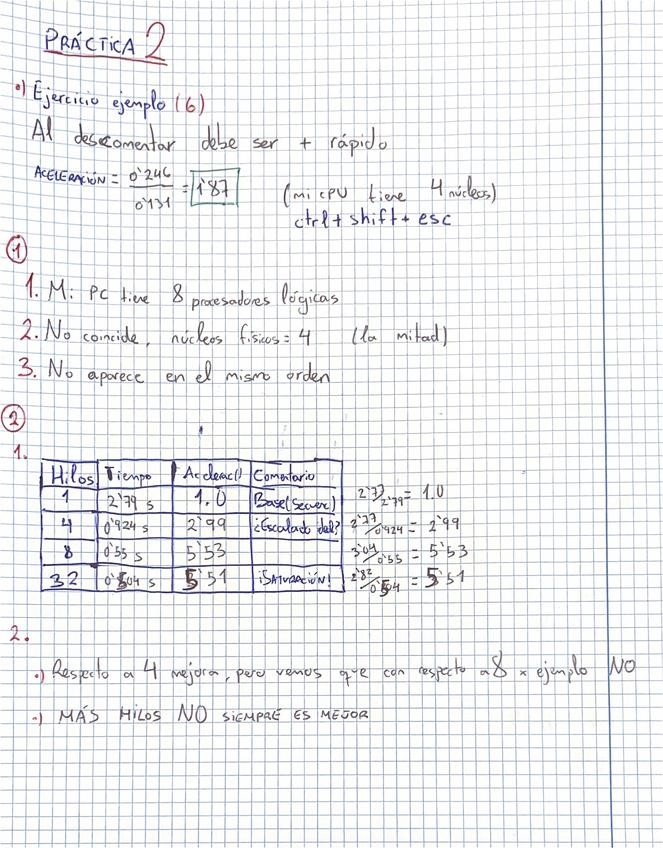 PRÁCTICA 2
•) Ejercicio ejemplo (6)
Al descomentar debe ser + rápido
ACELERACIÓN = 0'246 / 0'131 = 1'87 (mi CPU tiene 4 núcleos)
ctrl + shift + esc
1
1. Mi PC tiene 8 procesadores lógicas
2. No coincide, núcleos físicos = 4 (la mitad)
3. No aparece en el mismo orden
2
1.
Hilos Tiempo Acelerac() Comentario
1 2'79 s 1.0 Base(Secuenc) 2'77/2'79 = 1.0
4 0'924 s 2'99 ¿Escalado ideal? 2'77/0'924 = 2'99
8 0'55 s 5'53 3'04/0'55 = 5'53
32 0'504 s 5'51 ¡SATURACIÓN! 2'82/0'504 = 5'51
2.
•) Respecto a 4 mejora, pero vemos que con respecto a 8 x ejemplo NO
•) MÁS HILOS NO SIEMPRE ES MEJOR